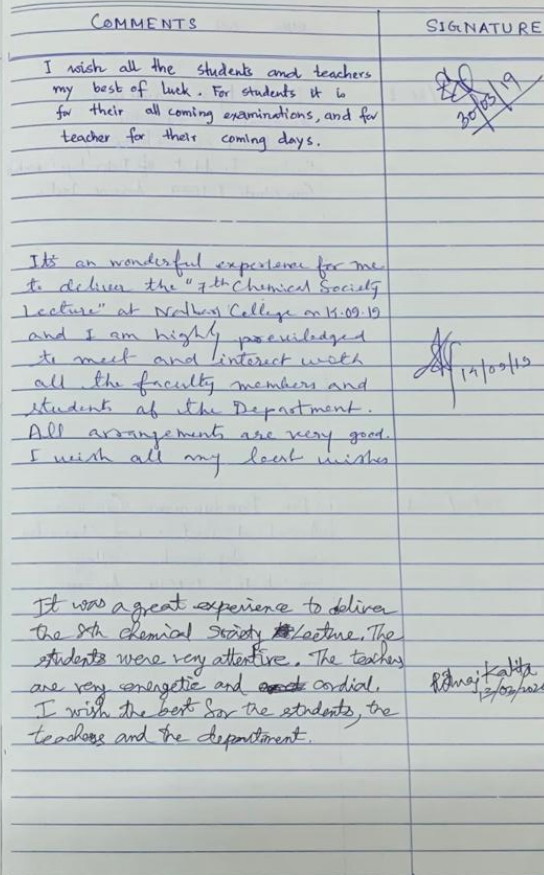 COMMENTS SIGNATURE
I wish all the students and teachers
my best of luck. For students it is
for their all coming examinations, and for
teacher for their coming days.
30/03/19
Its an wonderful experience for me
to deliver the "7th Chemical Society
Lecture" at College on 09.19
and I am highly previledged
to meet and interect with
all the faculty members and
students of the Department.
All arrangements are very good.
I wish all my best wishes
14/09/19
It was a great experience to deliver
the 8th Chemical Society Lecture. The
students were very attentive. The teachers
are very energetic and cordial.
I wish the best for the students, the
teachers and the department.
Kalita